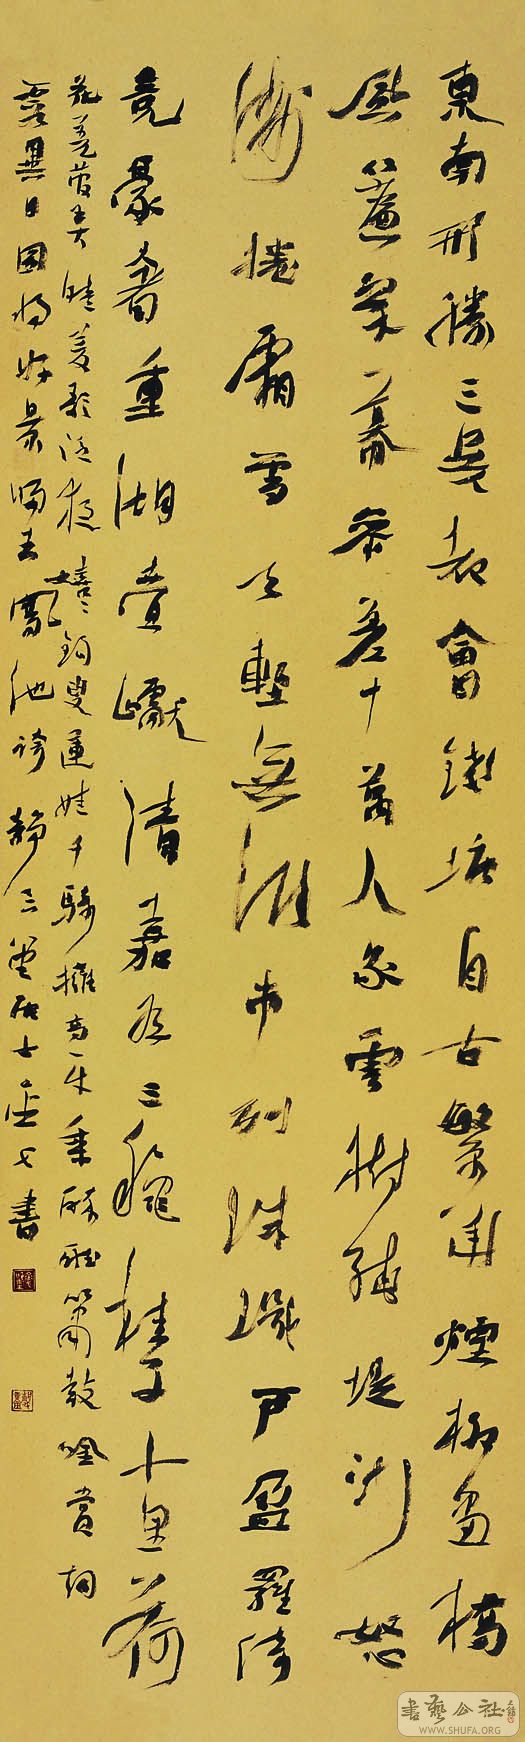 東南形勝三吳都會錢塘自古繁華煙柳畫橋
風簾翠幕參差十萬人家雲樹繞堤沙怒
濤捲霜雪天塹無涯市列珠璣戶盈羅綺
競豪奢重湖疊巘清嘉有三秋桂子十里荷
花羌管弄晴菱歌泛夜嬉嬉釣叟蓮娃千騎擁高牙乘醉聽簫鼓吟賞烟
霞異日圖將好景歸去鳳池誇 靜三堂居士書
書藝公社
WWW.SHUFA.ORG